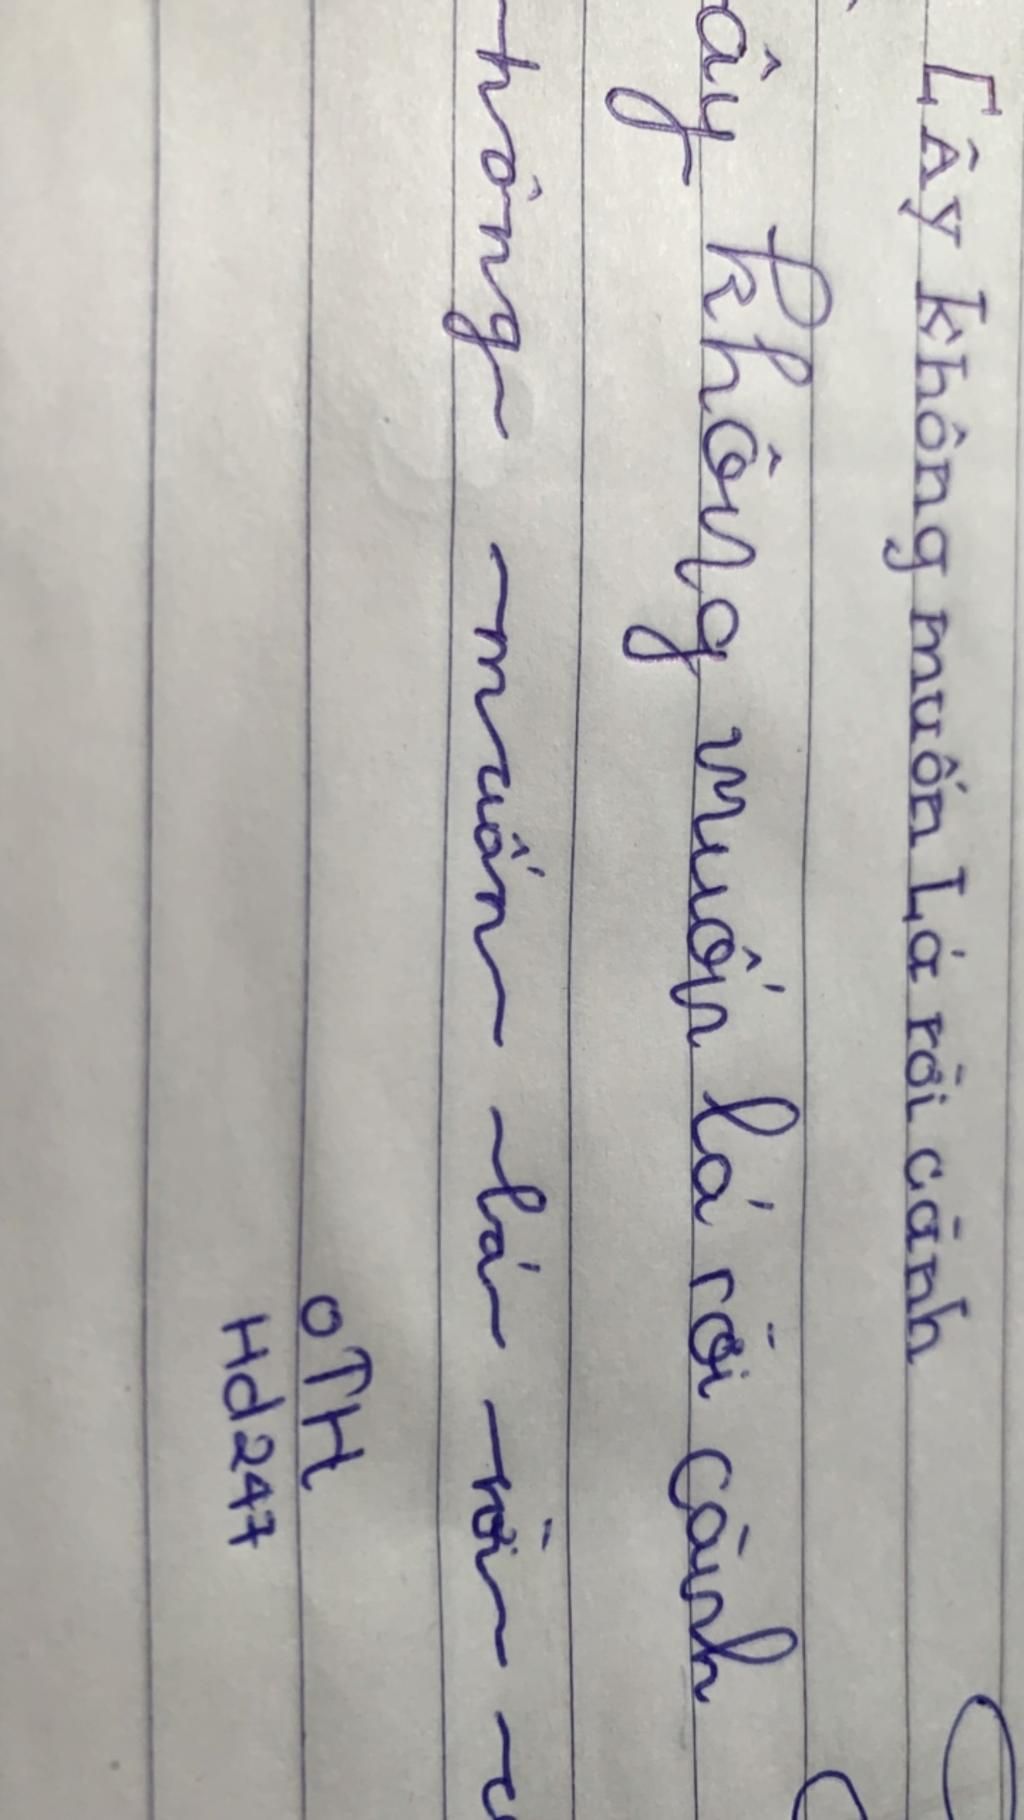 Cây không muốn Lá rời cành
ây không muốn lá rời cành
hông muốn lá rời c
OTH
Hd247